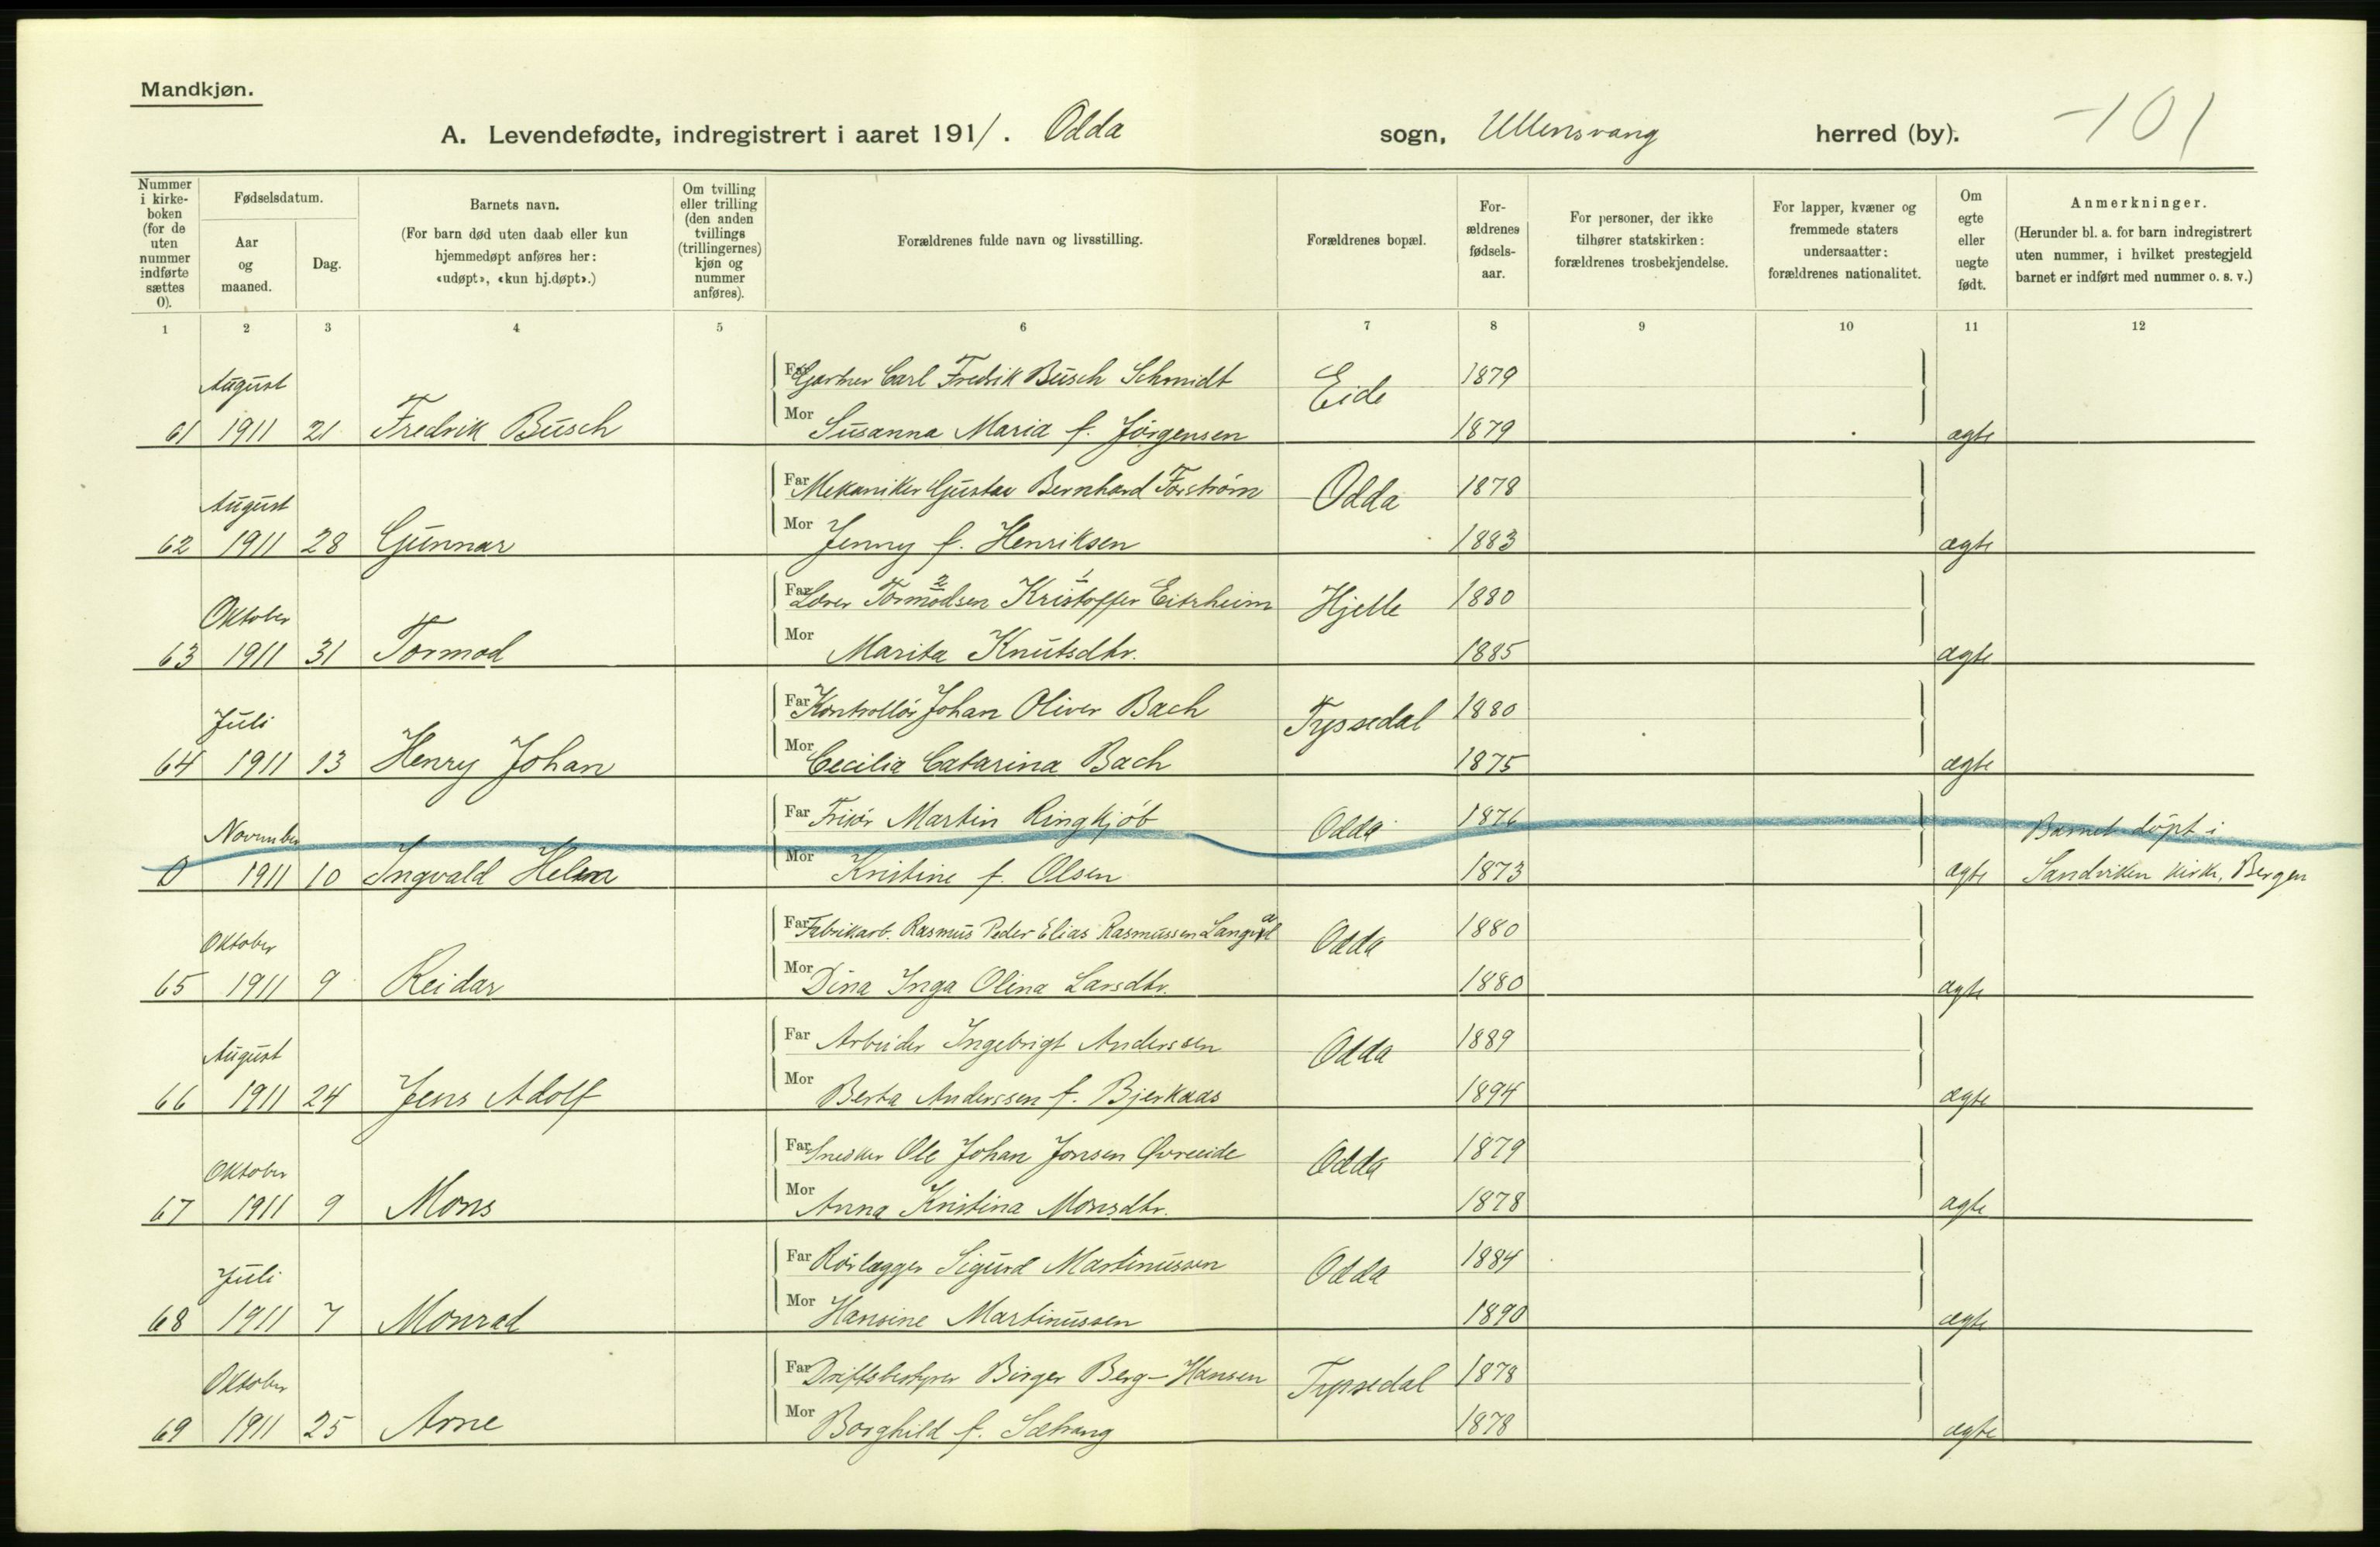 Mandkjøn.
A. Levendefødte, indregistrert i aaret 1911. Odda sogn, Ullensvang herred (by). 101
Nummer i kirke-boken (for de uten nummer indførte sættes 0).
Fødselsdatum.
Aar og maaned.
Dag.
Barnets navn.
(For barn død uten daab eller kun hjemmedøpt anføres her: «udøpt», «kun hj.døpt».)
Om tvilling eller trilling (den anden tvillings (trillingernes) kjøn og nummer anføres).
Forældrenes fulde navn og livsstilling.
Forældrenes bopæl.
For-ældrenes fødsels-aar.
For personer, der ikke tilhører statskirken: forældrenes trosbekjendelse.
For lapper, kvæner og fremmede staters undersaatter: forældrenes nationalitet.
Om egte eller uegte født.
Anmerkninger.
(Herunder bl. a. for barn indregistrert uten nummer, i hvilket prestegjeld barnet er indført med nummer o. s. v.)
1 2 3 4 5 6 7 8 9 10 11 12
August Far Gartner Carl Fredrik Busch Schmidt Eide 1879
61 1911 21 Fredrik Busch Mor Susanna Maria f. Jörgensen 1879 ægte
August Far Mekaniker Gustav Bernhard Forström Odda 1878
62 1911 28 Gunnar Mor Jenny f. Henriksen 1883 ægte
Oktober Far Tormodsen 2 Kristoffer 1 Eitrheim Hjelle 1880
63 1911 31 Tormod Mor Marita Knutsdtr. 1885 ægte
Juli Far Kontrollör Johan Oliver Bach Tyssedal 1880
64 1911 13 Henry Johan Mor Cecilia Catarina Bach 1875 ægte
November Far Frisör Martin Ringkjöb Odda 1876 Barnet döpt i
0 1911 10 Ingvald Mor Kristine f. Olsen 1873 ægte Sandviken kirke, Bergen
Oktober Far Fabrikarb. Rasmus Peder Elias Rasmussen Odda 1880
65 1911 9 Reidar Mor Dina Inga Olina Larsdtr. 1880 ægte
August Far Arbeider Ingebrigt Anderssen Odda 1889
66 1911 24 Jens Adolf Mor Berta Anderssen f. Bjerkaas 1894 ægte
Oktober Far Snedker Ole Johan Jonsen Øvreeide Odda 1879
67 1911 9 Mons Mor Anna Kristina Monsdtr. 1878 ægte
Juli Far Rörlægger Sigurd Martinussen Odda 1884
68 1911 7 Monrad Mor Hansine Martinussen 1890 ægte
Oktober Far Driftsbestyrer Birger Berg-Hansen Tyssedal 1878
69 1911 25 Arne Mor Borghild f. 1878 ægte